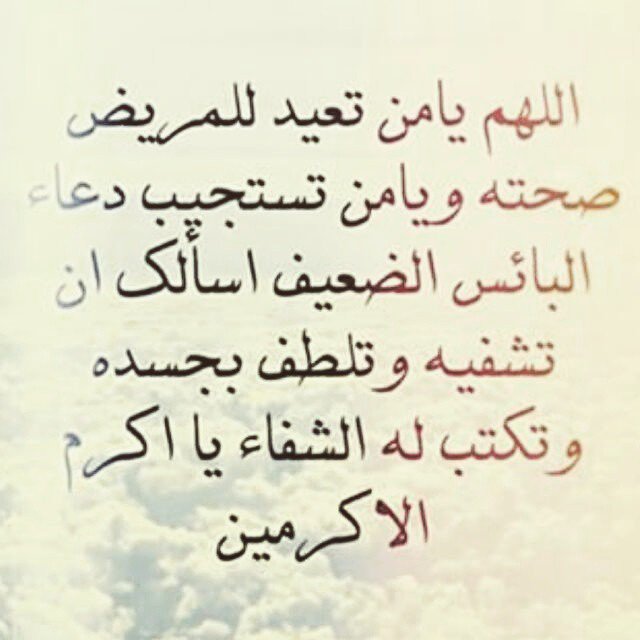 اللهم يامن تعيد للمريض
صحته ويامن تستجيب دعاء
البائس الضعيف اسألك ان
تشفيه وتلطف بجسده
وتكتب له الشفاء يا اكرم
الاكرمين